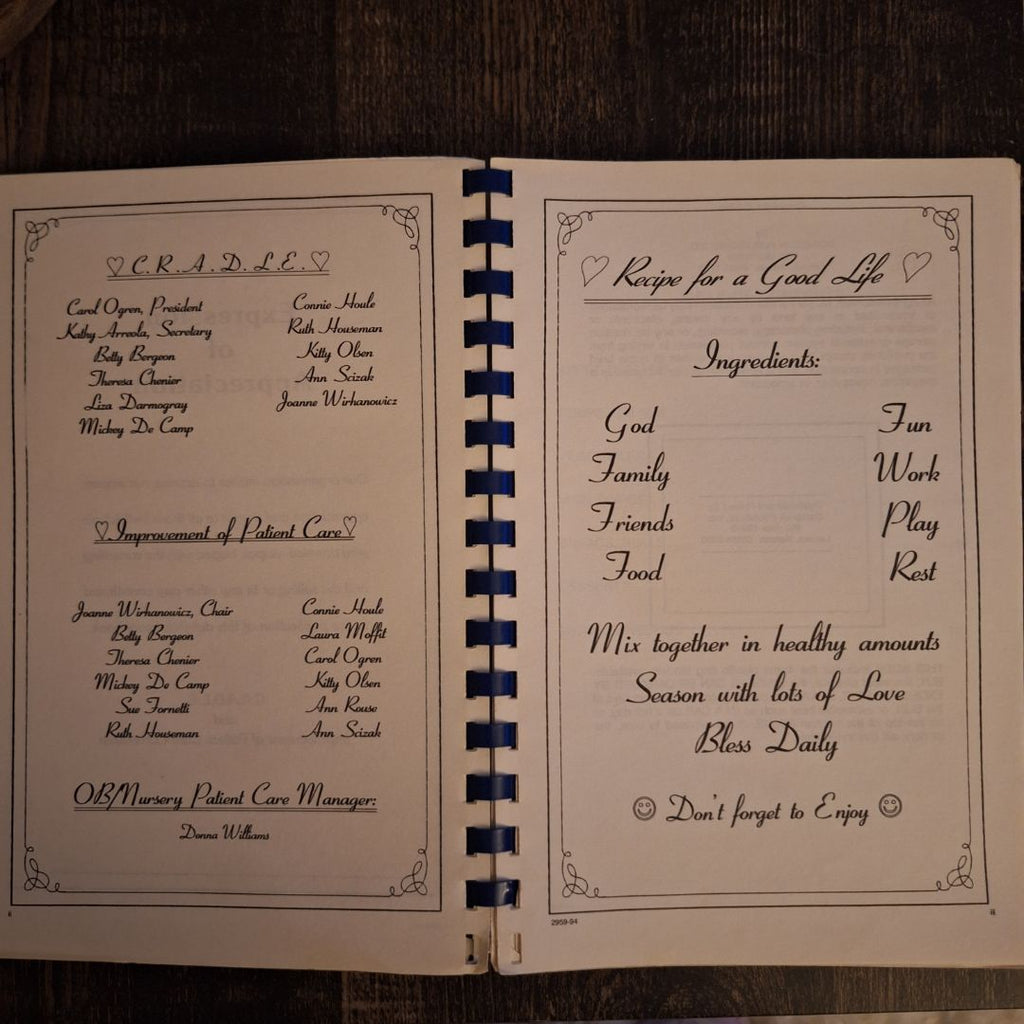 ♡ C.R.A.D.L.E. ♡
Carol Ogren, President
Kathy Arreola, Secretary
Betty Bergeon
Theresa Chenier
Liza Darmogray
Mickey De Camp
Connie Houle
Ruth Houseman
Kitty Olsen
Ann Scizak
Joanne Wirhanowicz
♡ Improvement of Patient Care ♡
Joanne Wirhanowicz, Chair
Betty Bergeon
Theresa Chenier
Mickey De Camp
Sue Fornetti
Ruth Houseman
Connie Houle
Laura Moffit
Carol Ogren
Kitty Olsen
Ann Rouse
Ann Scizak
OB/Nursery Patient Care Manager:
Donna Williams
♡ Recipe for a Good Life ♡
Ingredients:
God
Family
Friends
Food
Fun
Work
Play
Rest
Mix together in healthy amounts
Season with lots of Love
Bless Daily
☺ Don't forget to Enjoy ☺
2959-94